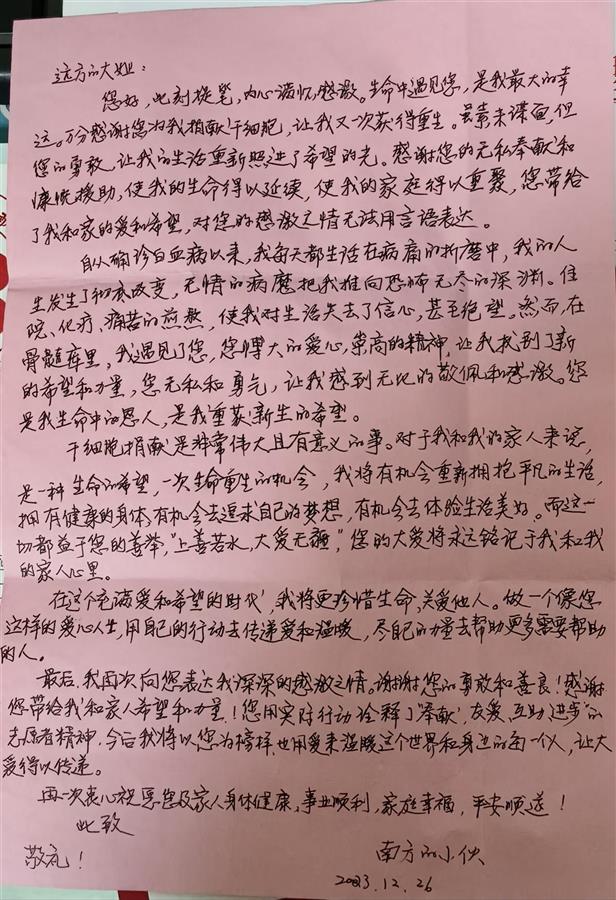 远方的大姐：
您好，此刻提笔，内心满怀感激。生命中遇见您，是我最大的幸
运。万分感谢您为我捐献干细胞，让我又一次获得重生。虽素未谋面，但
您的勇敢，让我的生活重新照进了希望的光。感谢您的无私奉献和
慷慨援助，使我的生命得以延续，使我的家庭得以重聚，您带给
了我和家的爱和希望，对您的感激之情无法用言语表达。
自从确诊白血病以来，我每天都生活在病痛的折磨中，我的人
生发生了彻底改变，无情的病魔把我推向恐怖无尽的深渊。住
院、化疗、痛苦的煎熬，使我对生活失去了信心，甚至绝望。然而，在
骨髓库里，我遇见了您，您博大的爱心，崇高的精神，让我找到了新
的希望和力量，您无私和勇气，让我感到无比的敬佩和感激。您
是我生命中的恩人，是我重获新生的希望。
干细胞捐献是非常伟大且有意义的事。对于我和我的家人来说，
是一种生命的希望，一次生命重生的机会，我将有机会重新拥抱平凡的生活，
拥有健康的身体，有机会去追求自己的梦想，有机会去体验生活美好。而这一
切都益于您的善举，“上善若水，大爱无疆”，您的大爱将永远铭记于我和我
的家人心里。
在这个充满爱和希望的时代，我将更珍惜生命，关爱他人。做一个像您
这样的爱心人士，用自己的行动去传递爱和温暖，尽自己的力量去帮助更多需要帮助
的人。
最后，我再次向您表达我深深的感激之情。谢谢您的勇敢和善良！感谢
您带给我和家人希望和力量！您用实际行动诠释了“奉献、友爱、互助、进步”的
志愿者精神，今后我将以您为榜样，也用爱来温暖这个世界和身边的每一个人，让大
爱得以传递。
再一次衷心祝愿您及家人身体健康，事业顺利，家庭幸福，平安顺遂！
此致
敬礼！
南方的小伙
2023.12.26